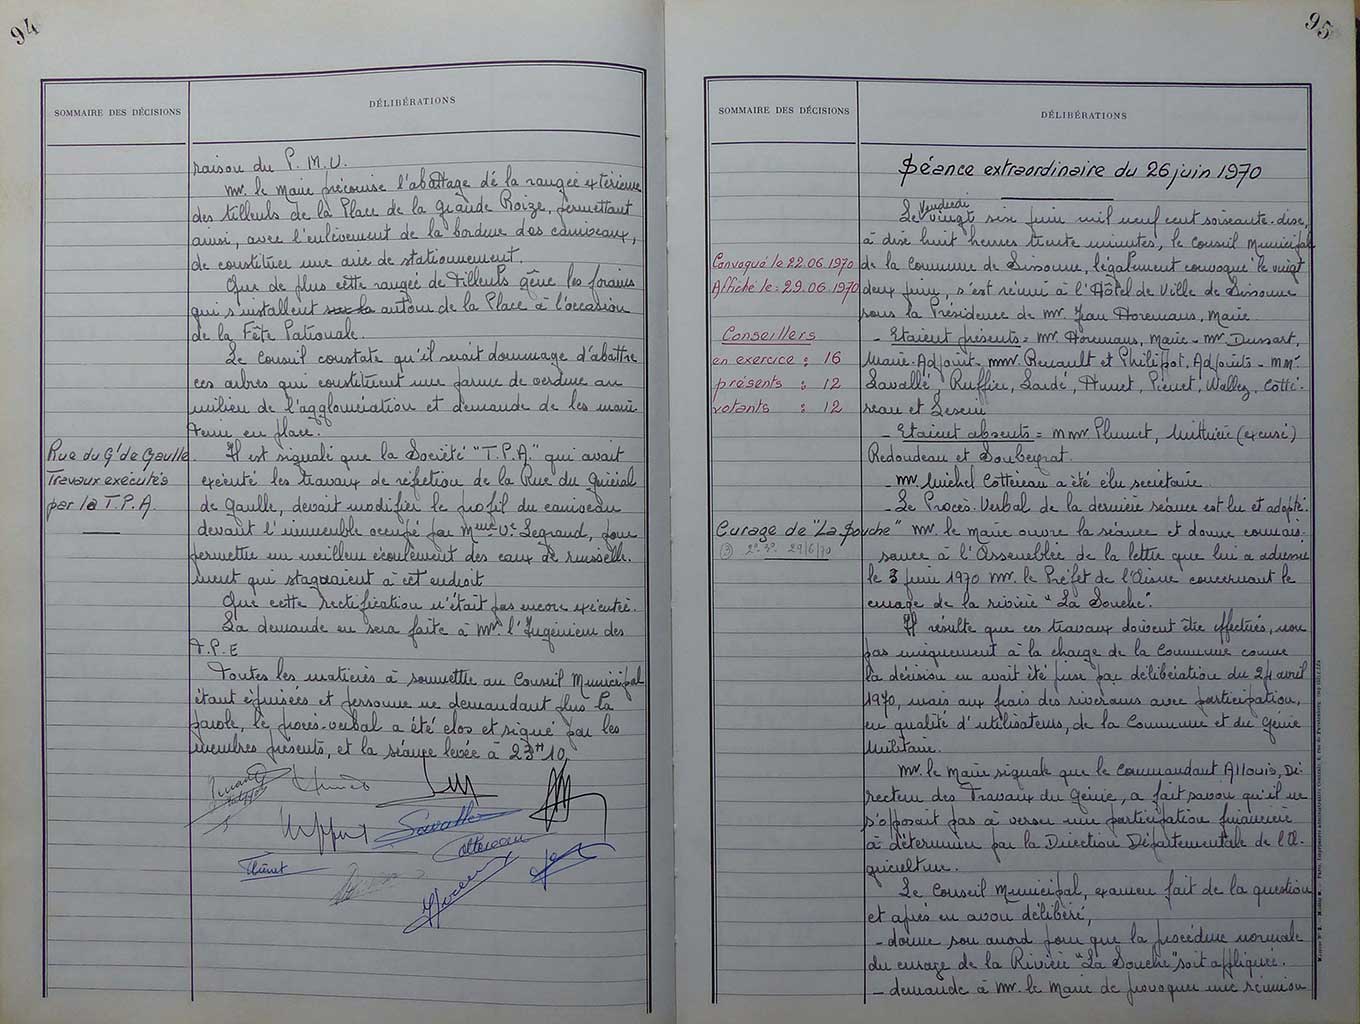 94
SOMMAIRE DES DÉCISIONS
DÉLIBÉRATIONS
raison du P.M.U.
Mr. le Maire préconise l'abattage de la rangée extérieure
des tilleuls de la Place de la Grande Roize, permettant
ainsi, avec l'enlèvement de la bordure des caniveaux,
de constituer une aire de stationnement.
Que de plus cette rangée de Tilleuls gêne les forains
qui s'installent autour de la Place à l'occasion
de la Fête Patronale.
Le Conseil constate qu'il serait dommage d'abattre
ces arbres qui constituent une parure de verdure au
milieu de l'agglomération et demande de les main
tenir en place.
Rue du Gl de Gaulle.
Travaux exécutés
par la T.P.A.
Il est signalé que la Société "T.P.A." qui avait
exécuté les travaux de réfection de la Rue du Général
de Gaulle, devait modifier le profil du caniveau
devant l'immeuble occupé par Mme Ve Legrand, pour
permettre un meilleur écoulement des eaux de ruisselle-
ment qui stagnaient à cet endroit
Que cette rectification n'était pas encore exécutée.
La demande en sera faite à Mr. l'Ingénieur des
T.P.E
Toutes les matières à soumettre au Conseil Municipal
étant épuisées et personne ne demandant plus la
parole, le procès-verbal a été clos et signé par les
membres présents, et la séance levée à 23H10.
Lavallé
Cottereau
Hunet
95
SOMMAIRE DES DÉCISIONS
DÉLIBÉRATIONS
Séance extraordinaire du 26 juin 1970
Vendredi
Le vingt six juin mil neuf cent soixante-dix,
à dix huit heures trente minutes, le Conseil Municipal
Convoqué le 22.06.1970
Affiché le: 29.06.1970
de la Commune de Sissonne, légalement convoqué le vingt
deux juin, s'est réuni à l'Hôtel de Ville de Sissonne
sous la Présidence de Mr. Jean Horemans, Maire
Conseillers
en exercice : 16
présents : 12
votants : 12
- Etaient présents = Mr. Horemans, Maire - Mr. Dussart,
Maire-Adjoint - MMr. Renault et Philipot, Adjoints - MMr
Lavallé, Ruffier, Lardé, Hunet, Pienet, Wallez, Cotte-
reau et
- Etaient absents = MMr Plumet, (excusé)
Redoudeau et Soubeyrat.
- Mr. Michel Cottereau a été élu secrétaire
- Le Procès-Verbal de la dernière séance est lu et adopté.
Curage de "La Souche"
2e 3e 29/6/70
Mr. le Maire ouvre la séance et donne connais-
sance à l'Assemblée de la lettre que lui a adressée
le 3 juin 1970 Mr. le Préfet de l'Aisne concernant le
curage de la rivière "La Souche".
Il résulte que ces travaux doivent être effectués, non
pas uniquement à la charge de la Commune comme
la décision en avait été prise par délibération du 24 avril
1970, mais aux frais des riverains avec participation,
en qualité d'utilisateurs, de la Commune et du Génie
Militaire.
Mr. le Maire signale que le Commandant Allouis, Di-
recteur des Travaux du Génie, a fait savoir qu'il ne
s'opposait pas à verser une participation financière
à déterminer par la Direction Départementale de l'A-
griculture.
Le Conseil Municipal, examen fait de la question
et après en avoir délibéré,
- donne son accord pour que la procédure normale
du curage de la Rivière "La Souche" soit appliquée.
- demande à Mr. le Maire de provoquer une réunion